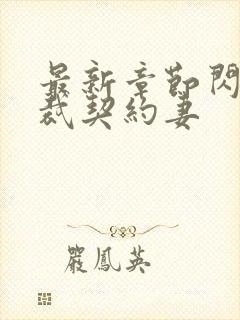 最新章節閃
裁契約妻
嚴鳳英